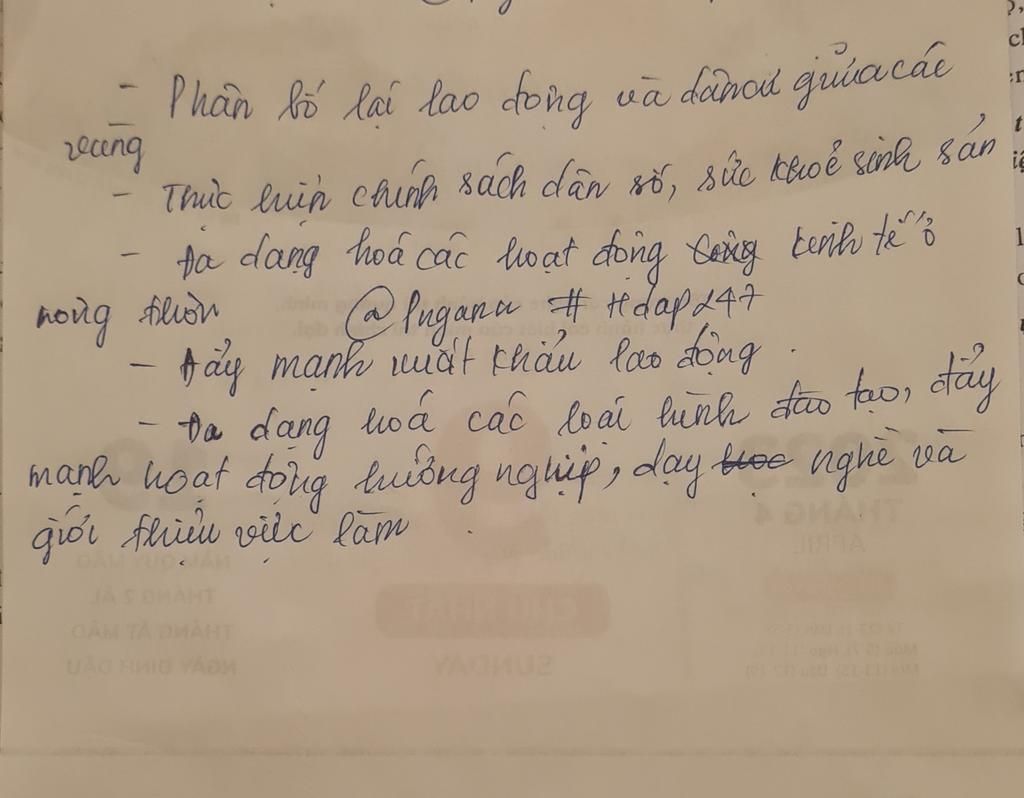 - Phân bố lại lao động và dân cư giữa các
vùng
- Thực hiện chính sách dân số, sức khoẻ sinh sản
- Đa dạng hoá các hoạt động kinh tế ở
nông thôn @Pnganu # Hdap247
- Đẩy mạnh xuất khẩu lao động.
- Đa dạng hoá các loại hình đào tạo, đẩy
mạnh hoạt động hướng nghiệp, dạy nghề và
giới thiệu việc làm.
2023
THÁNG 4
APRIL
9
19
CHỦ NHẬT
SUNDAY
NĂM QUÝ MÃO
THÁNG 2 ÂL
THÁNG ẤT MÃO
NGÀY ĐINH DẬU